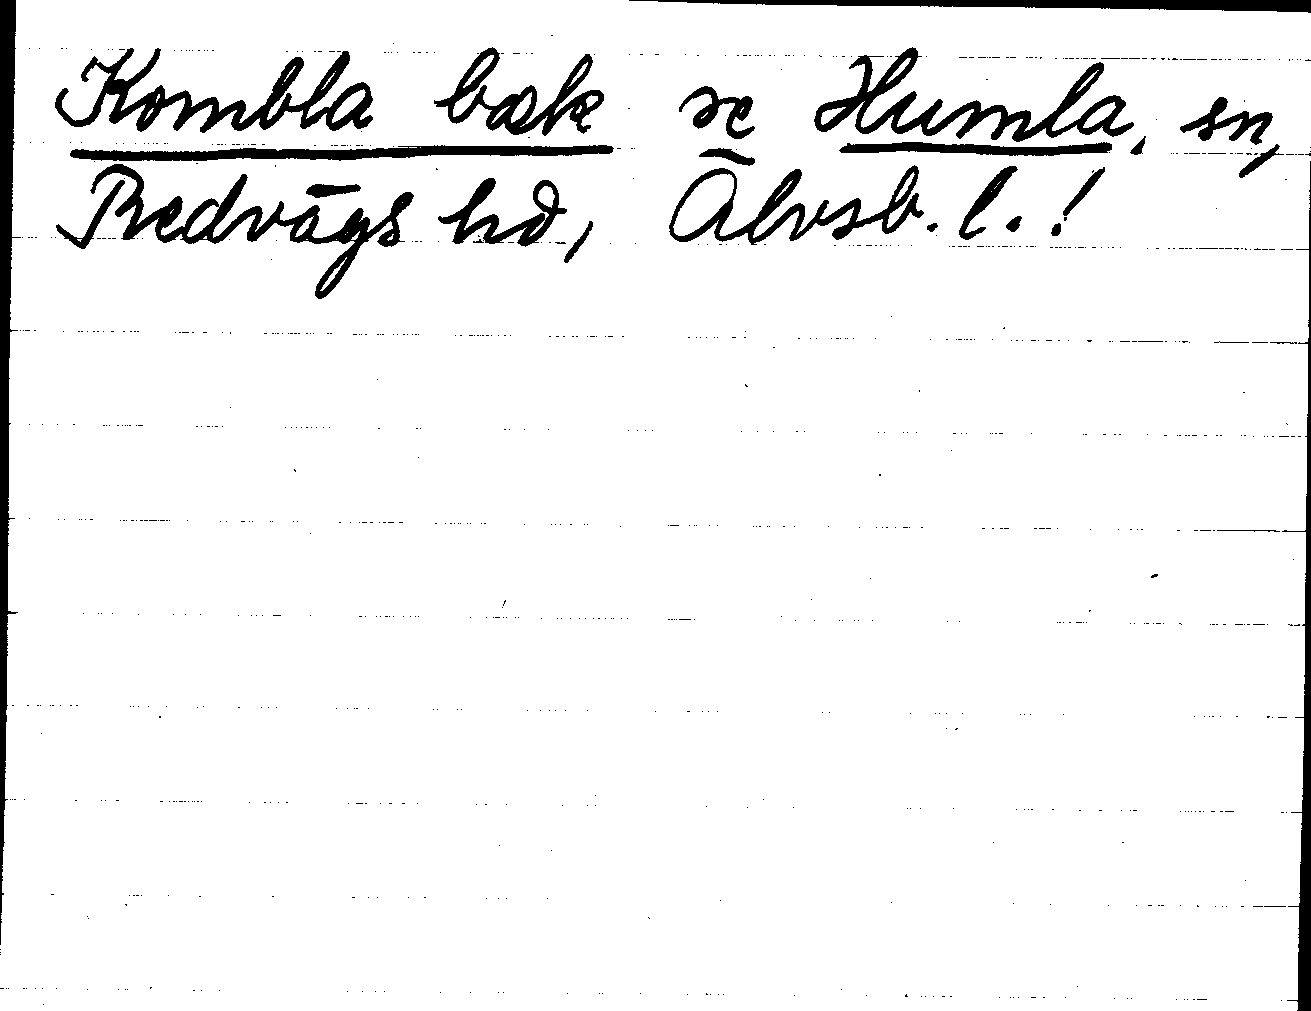 Kombla bæk se Humla, sn,
Redvägs hd, Älvsb. l. !